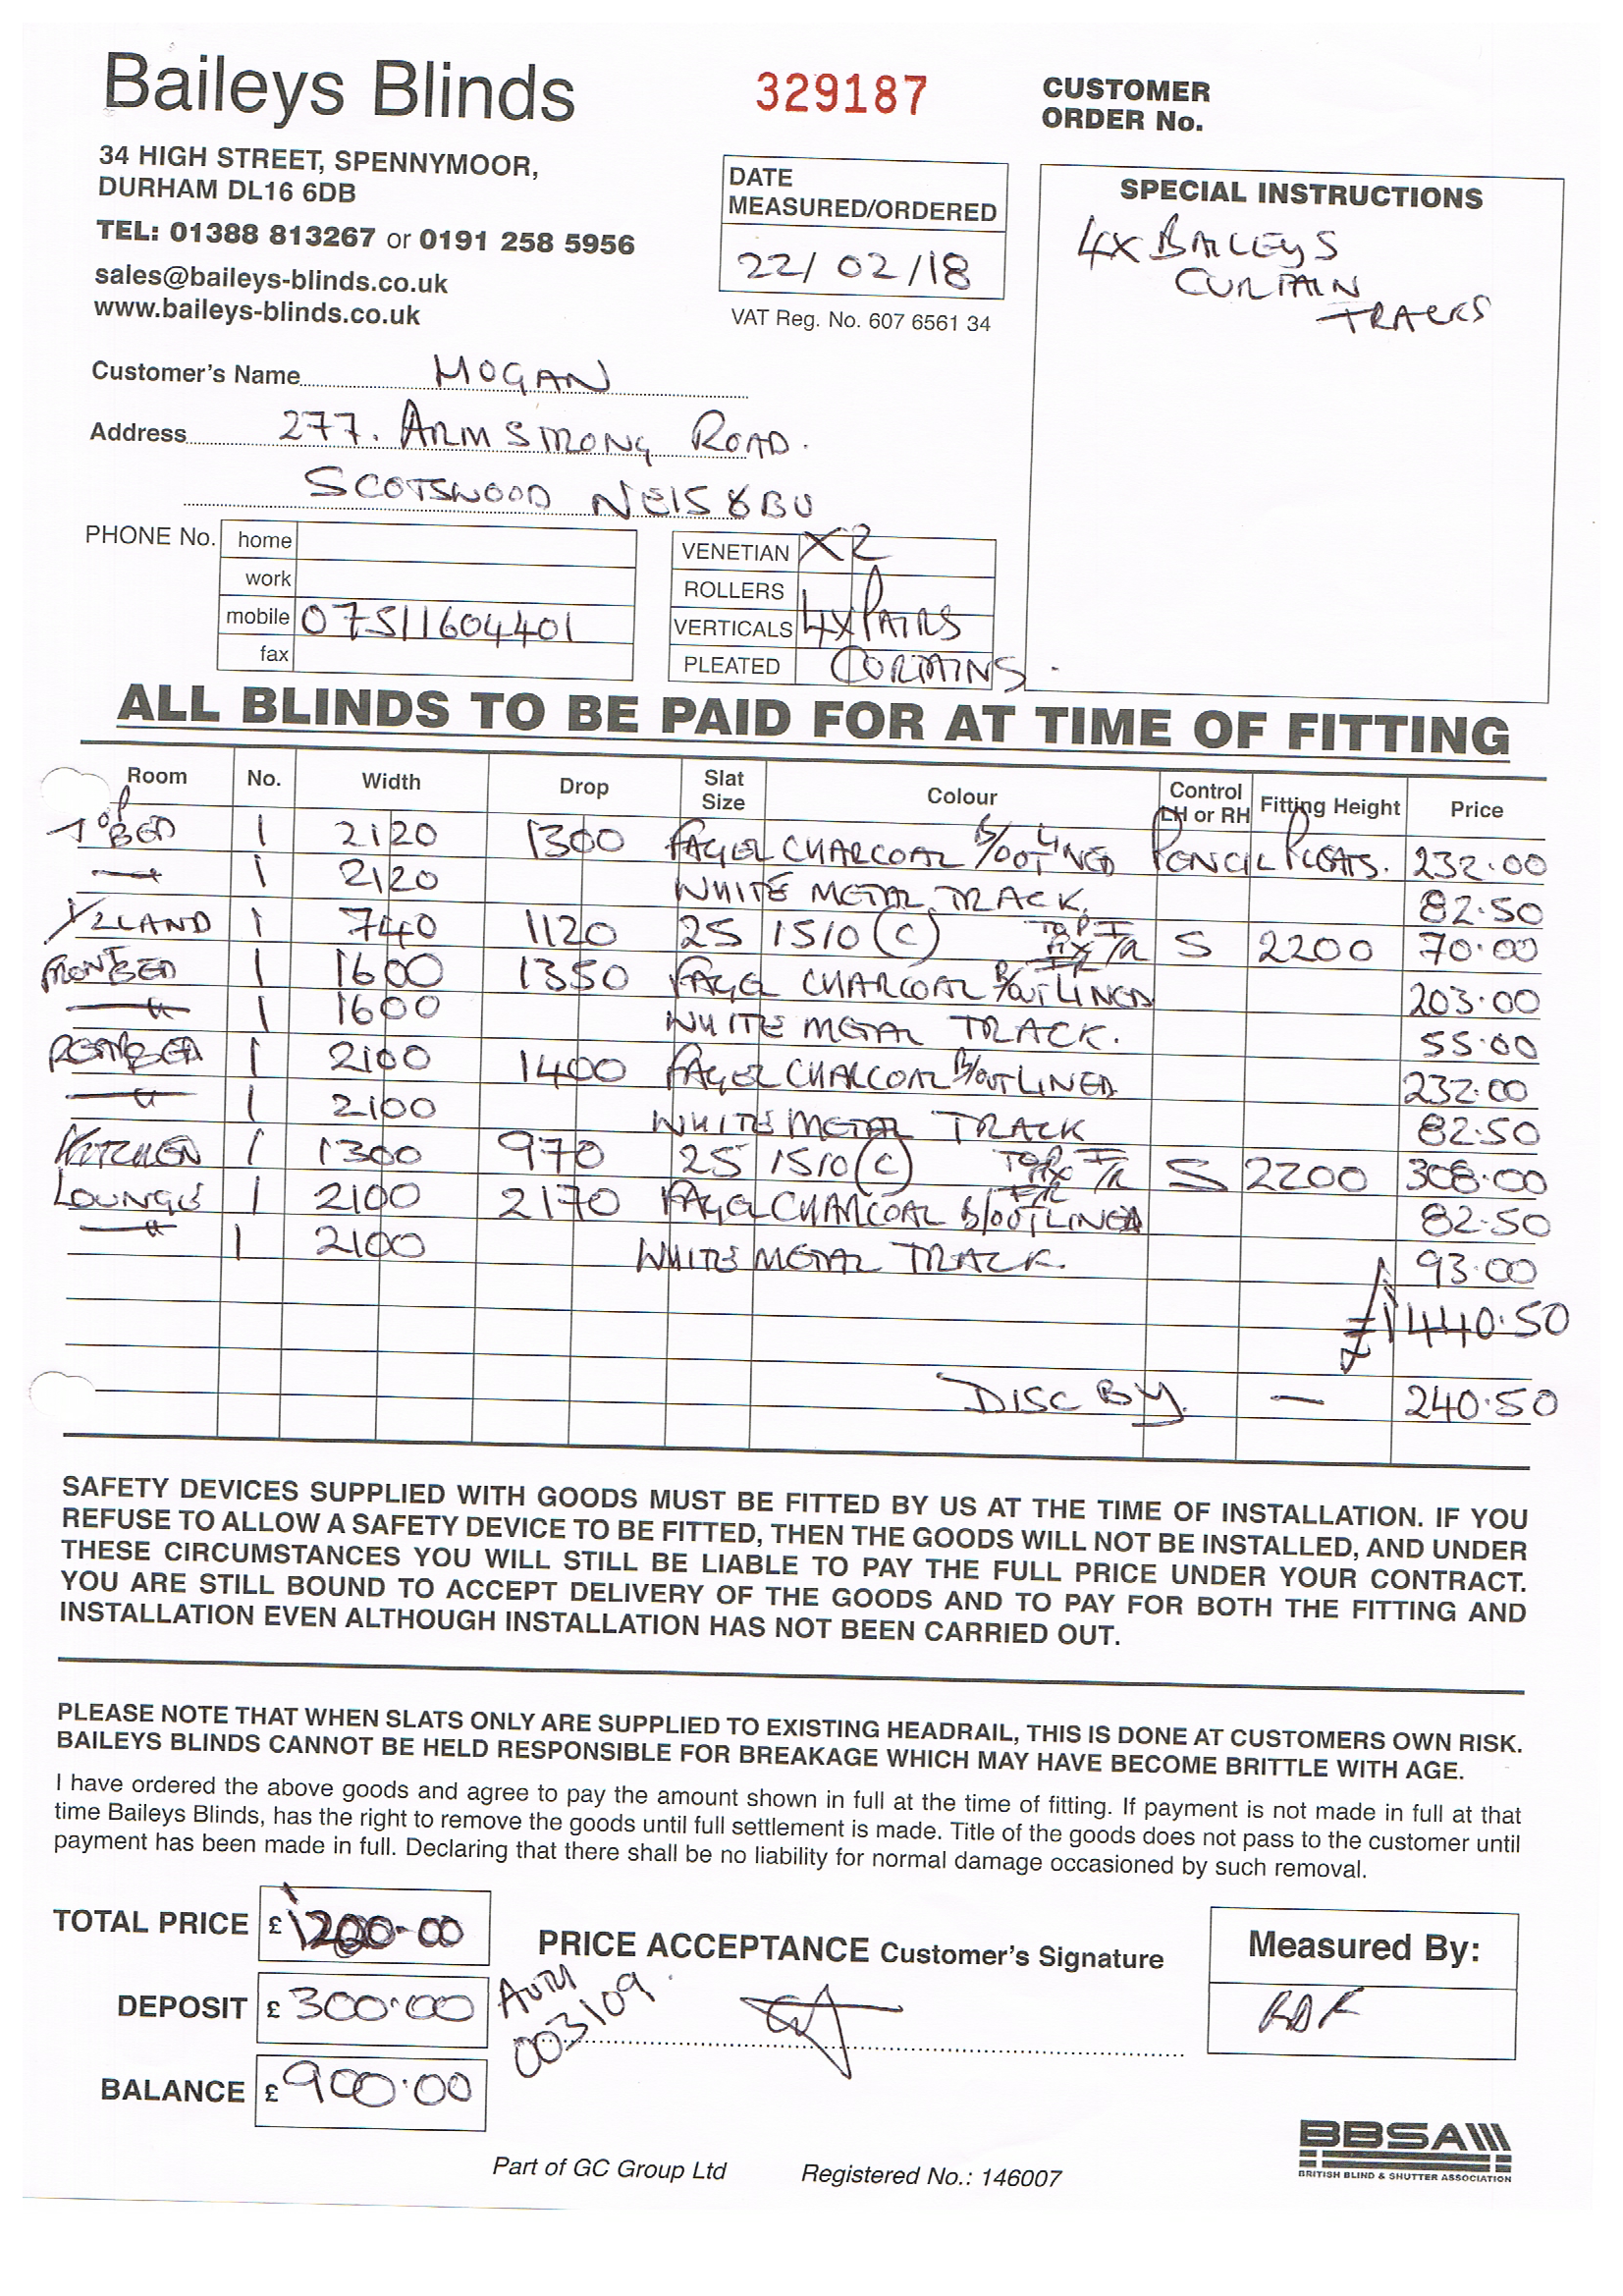 Baileys Blinds
329187
CUSTOMER
ORDER No.
34 HIGH STREET, SPENNYMOOR,
DURHAM DL16 6DB
TEL: 01388 813267 or 0191 258 5956
sales@baileys-blinds.co.uk
www.baileys-blinds.co.uk
DATE
MEASURED/ORDERED
22/02/18
VAT Reg. No. 607 6561 34
SPECIAL INSTRUCTIONS
4X BAILEYS
CURTAIN
TRACKS
Customer's Name MOGAN
Address 277. ARMSTRONG ROAD.
SCOTSWOOD NE15 8BU
PHONE No. home
work
mobile 07511604401
fax
VENETIAN X2
ROLLERS
VERTICALS 4X PAIRS
PLEATED CURTAINS.
ALL BLINDS TO BE PAID FOR AT TIME OF FITTING
Room No. Width Drop Slat Size Colour Control LH or RH Fitting Height Price
BED 1 2120 1300 FAGEL CHARCOAL B/OUT LINED PENCIL PLEATS. 232.00
1 2120 WHITE METAL TRACK. 82.50
1/2LAND 1 740 1120 25 1510 (C) S 2200 70.00
FRONT BED 1 1600 1350 FAGEL CHARCOAL B/OUT LINED 203.00
1 1600 WHITE METAL TRACK. 55.00
REAR BED 1 2100 1400 FAGEL CHARCOAL B/OUT LINED 232.00
1 2100 WHITE METAL TRACK 82.50
KITCHEN 1 1300 970 25 1510 (C) S 2200 308.00
LOUNGE 1 2100 2170 FAGEL CHARCOAL B/OUT LINED 82.50
1 2100 WHITE METAL TRACK. 93.00
1440.50
DISC BY. — 240.50
SAFETY DEVICES SUPPLIED WITH GOODS MUST BE FITTED BY US AT THE TIME OF INSTALLATION. IF YOU
REFUSE TO ALLOW A SAFETY DEVICE TO BE FITTED, THEN THE GOODS WILL NOT BE INSTALLED, AND UNDER
THESE CIRCUMSTANCES YOU WILL STILL BE LIABLE TO PAY THE FULL PRICE UNDER YOUR CONTRACT.
YOU ARE STILL BOUND TO ACCEPT DELIVERY OF THE GOODS AND TO PAY FOR BOTH THE FITTING AND
INSTALLATION EVEN ALTHOUGH INSTALLATION HAS NOT BEEN CARRIED OUT.
PLEASE NOTE THAT WHEN SLATS ONLY ARE SUPPLIED TO EXISTING HEADRAIL, THIS IS DONE AT CUSTOMERS OWN RISK.
BAILEYS BLINDS CANNOT BE HELD RESPONSIBLE FOR BREAKAGE WHICH MAY HAVE BECOME BRITTLE WITH AGE.
I have ordered the above goods and agree to pay the amount shown in full at the time of fitting. If payment is not made in full at that
time Baileys Blinds, has the right to remove the goods until full settlement is made. Title of the goods does not pass to the customer until
payment has been made in full. Declaring that there shall be no liability for normal damage occasioned by such removal.
TOTAL PRICE £ 1200.00
PRICE ACCEPTANCE Customer's Signature
Measured By:
DEPOSIT £ 300.00
AUTH
003109
BALANCE £ 900.00
BBSA
BRITISH BLIND & SHUTTER ASSOCIATION
Part of GC Group Ltd Registered No.: 146007